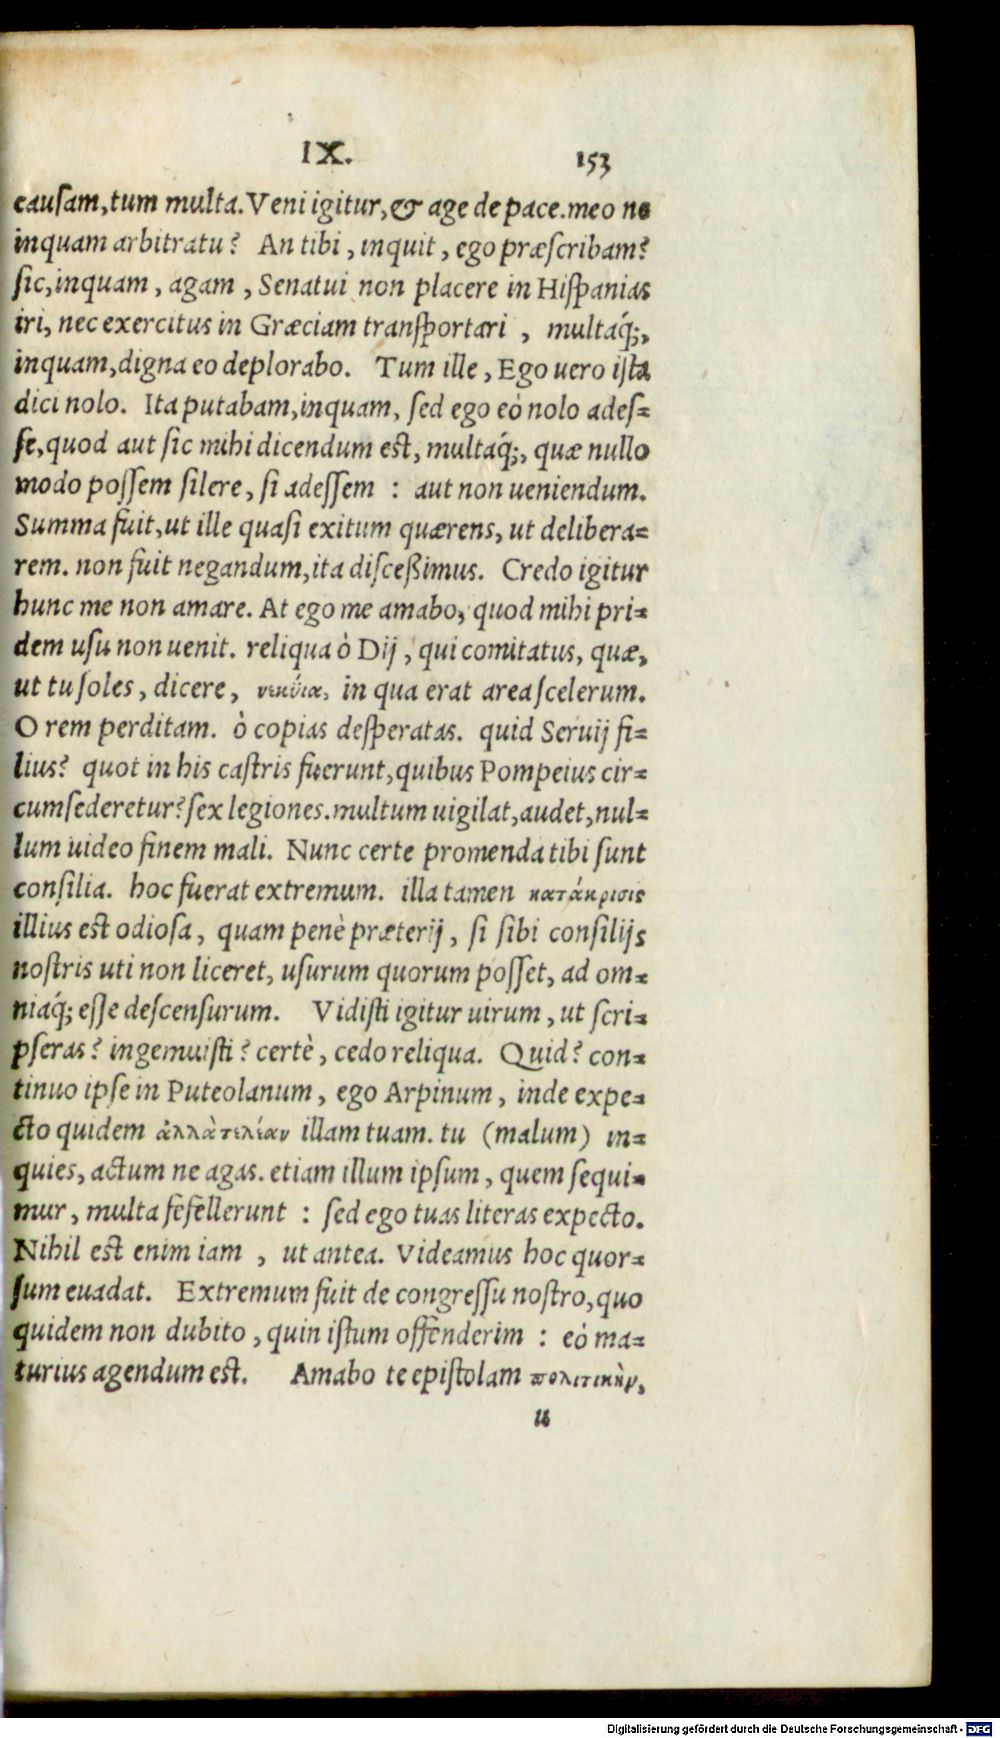 IX. 153
cauſam, tum multa. Veni igitur, & age de pace. meo ne
inquam arbitratu? An tibi, inquit, ego præſcribam?
ſic, inquam, agam, Senatui non placere in Hiſpanias
iri, nec exercitus in Græciam tranſportari, multaq́;,
inquam, digna eo deplorabo. Tum ille, Ego uero iſta
dici nolo. Ita putabam, inquam, ſed ego eò nolo adeſ=
ſe, quod aut ſic mihi dicendum eſt, multaq́;, quæ nullo
modo poſſem ſilere, ſi adeſſem : aut non ueniendum.
Summa fuit, ut ille quaſi exitum quærens, ut delibera=
rem. non fuit negandum, ita diſceßimus. Credo igitur
hunc me non amare. At ego me amabo, quod mihi pri=
dem uſu non uenit. reliqua ò Dij, qui comitatus, quæ,
ut tu ſoles, dicere, νεκύια, in qua erat area ſcelerum.
O rem perditam. ò copias deſperatas. quid Seruij fi=
lius? quot in his caſtris fuerunt, quibus Pompeius cir=
cumſederetur? ſex legiones. multum uigilat, audet, nul=
lum uideo finem mali. Nunc certe promenda tibi ſunt
conſilia. hoc fuerat extremum. illa tamen κατάκρισις
illius eſt odioſa, quam penè præterij, ſi ſibi conſilijs
noſtris uti non liceret, uſurum quorum poſſet, ad om=
niaq́; eſſe deſcenſurum. Vidiſti igitur uirum, ut ſcri=
pſeras? ingemuiſti? certè, cedo reliqua. Quid? con=
tinuo ipſe in Puteolanum, ego Arpinum, inde expe=
cto quidem ἀλλὰτελίαν illam tuam. tu (malum) in=
quies, actum ne agas. etiam illum ipſum, quem ſequi=
mur, multa fefellerunt : ſed ego tuas literas expecto.
Nihil eſt enim iam, ut antea. Videamus hoc quor=
ſum euadat. Extremum fuit de congreſſu noſtro, quo
quidem non dubito, quin iſtum offenderim : eò ma=
turius agendum eſt. Amabo te epiſtolam πολιτικὴν,
u
Digitalisierung gefördert durch die Deutsche Forschungsgemeinschaft - DFG